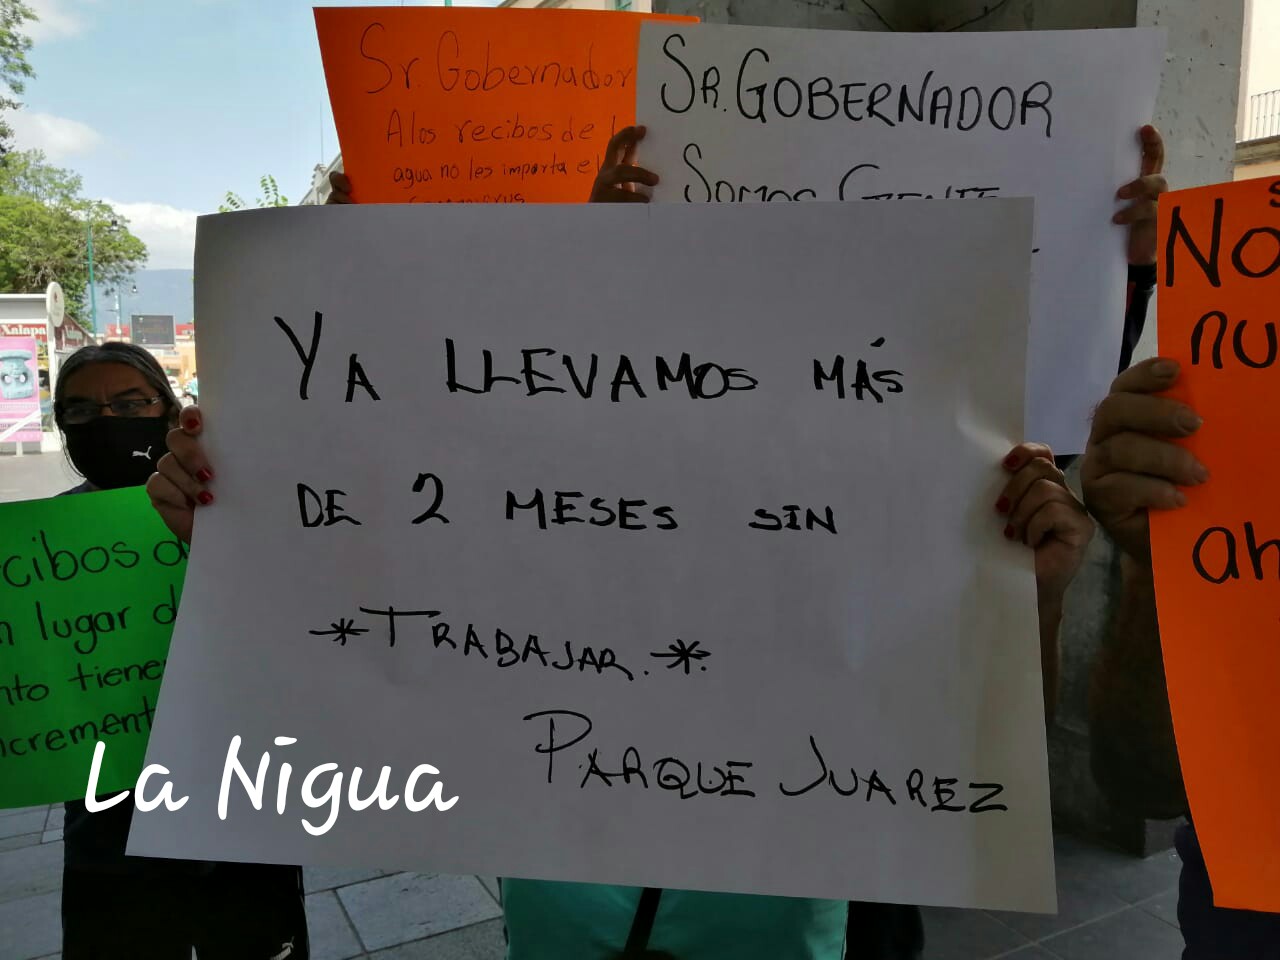 Sr. Gobernador
A los recibos de
agua no les importa el
SR. GOBERNADOR
SOMOS GENTE
YA LLEVAMOS MÁS
DE 2 MESES SIN
*TRABAJAR.*
PARQUE JUAREZ
No
nu
ah
cibos d
lugar d
nto tiene
ncrement
Xalapa
La Nigua